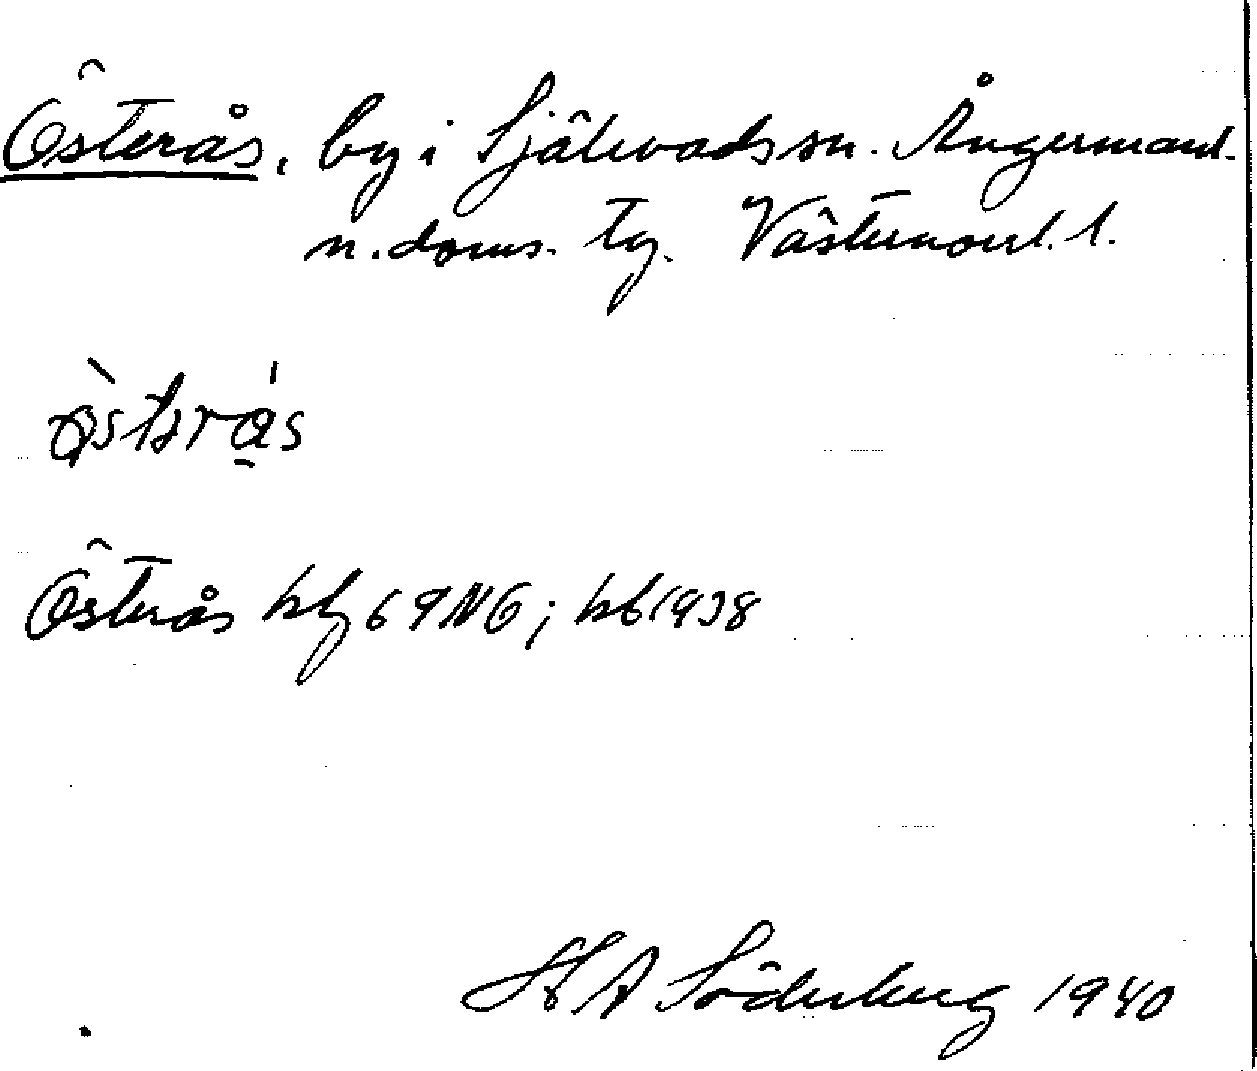 Österås, by i Själevads sn. Ångermanl.
n. doms. tg. Västernorrl. l.
Österås kbg 69NG; kb 1938
H A Söderberg 1940